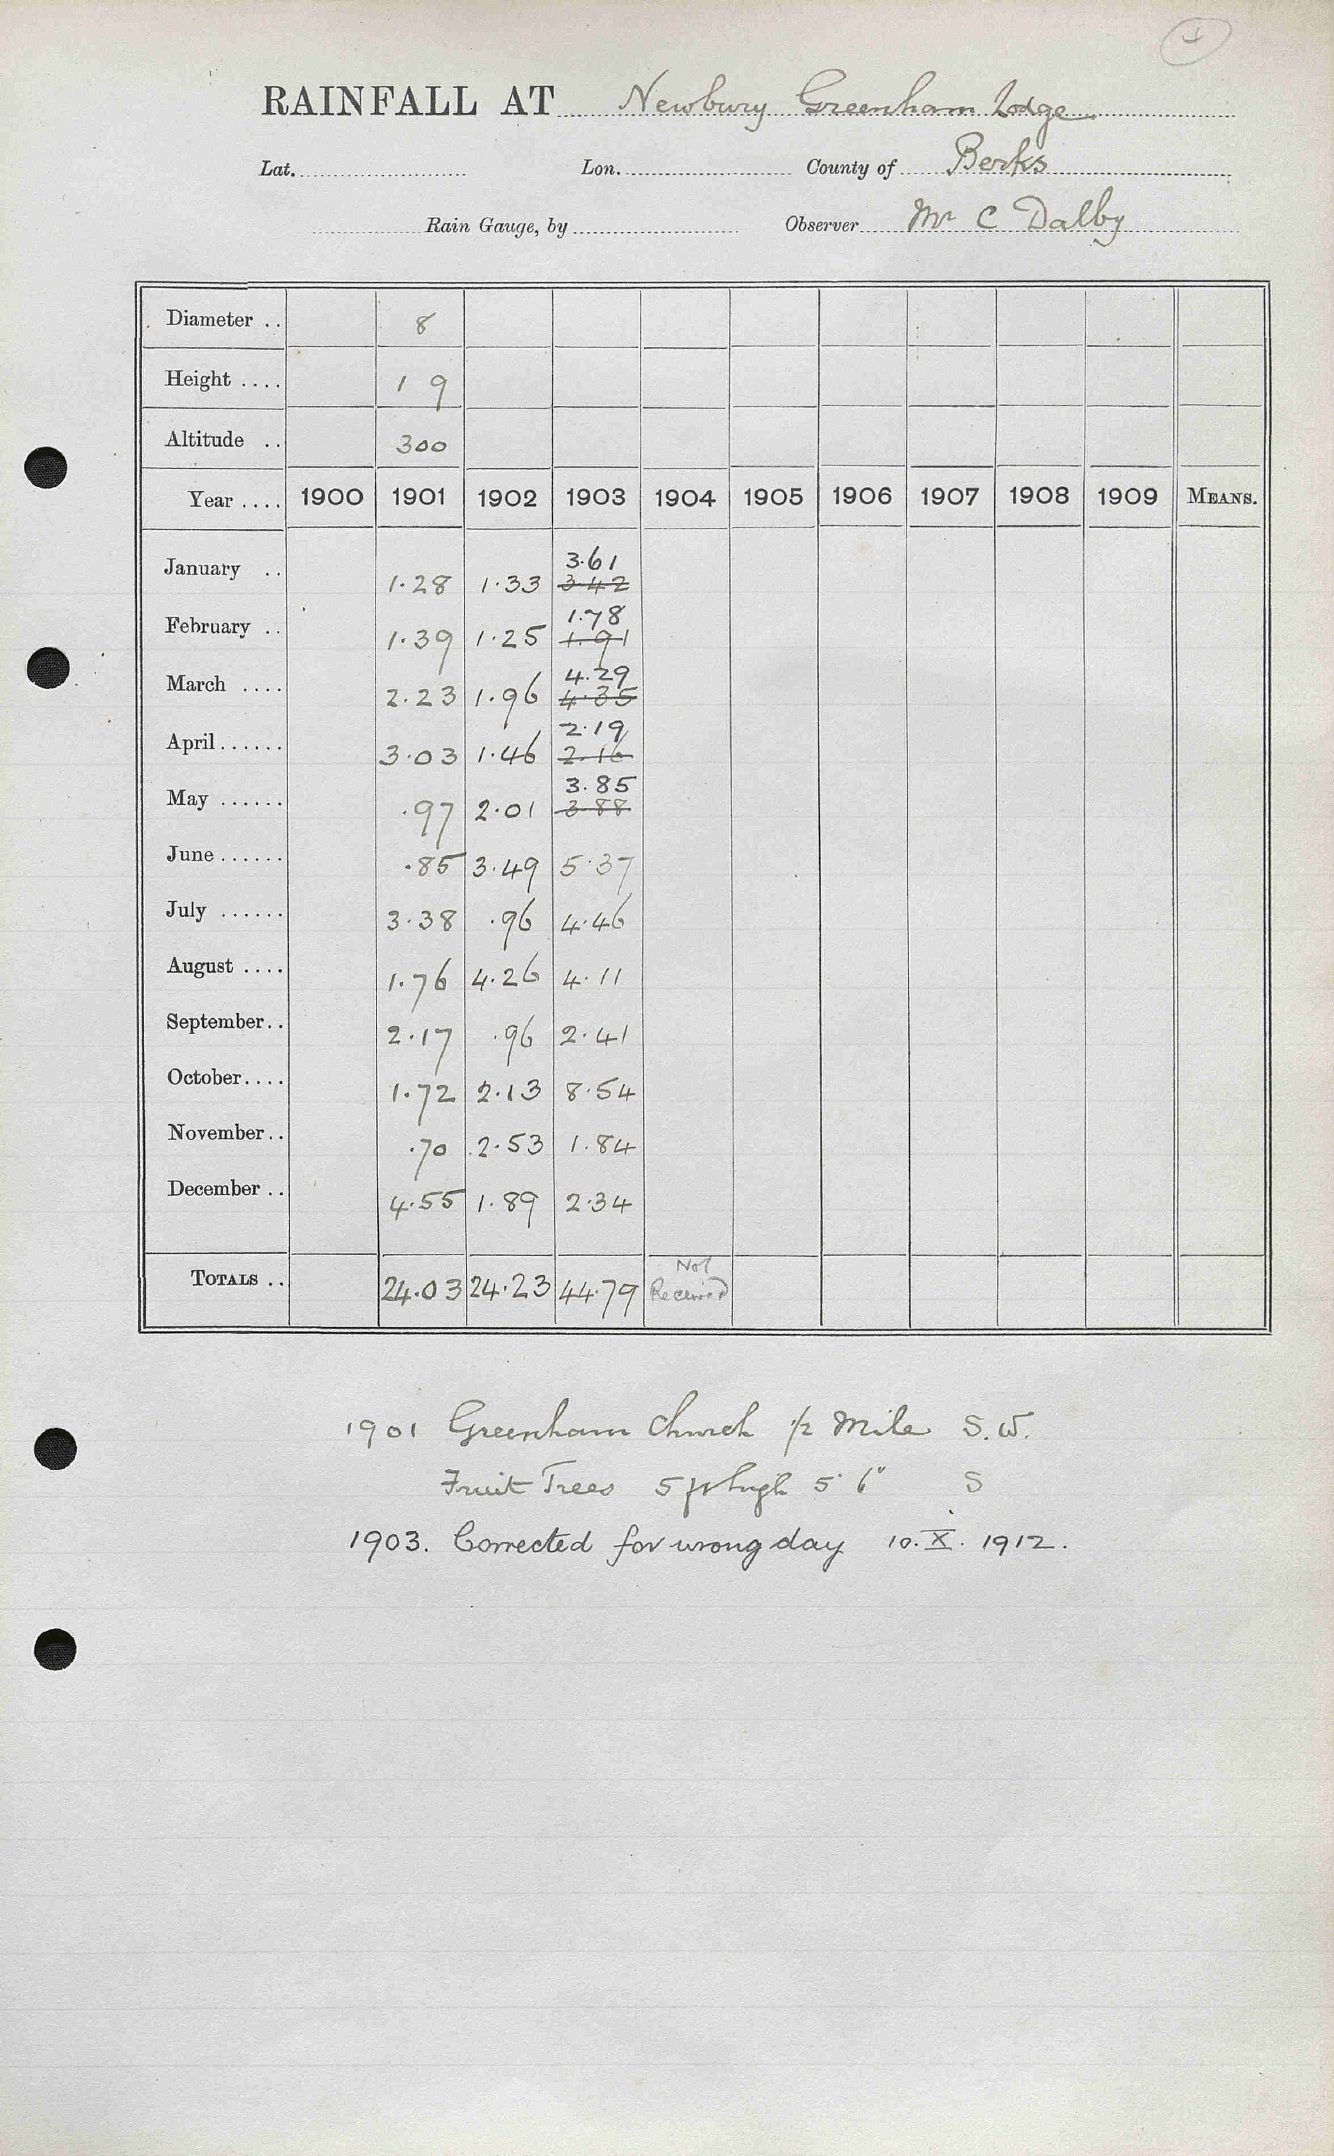 RAINFALL AT Newbury Greenham Lodge
Lat. Lon. County of Berks
Rain Gauge, by Observer Mr C Dalby
Diameter .. 8
Height .... 1 9
Altitude .. 300
Year .... 1900 1901 1902 1903 1904 1905 1906 1907 1908 1909 MEANS.
3.61
January .. 1.28 1.33 3.42
1.78
February .. 1.39 1.25 1.91
4.29
March .... 2.23 1.96 4.35
2.19
April ...... 3.03 1.46 2.16
3.85
May ...... .97 2.01 3.88
June ...... .85 3.49 5.37
July ...... 3.38 .96 4.46
August .... 1.76 4.26 4.11
September.. 2.17 .96 2.41
October.... 1.72 2.13 8.54
November.. .70 2.53 1.84
December .. 4.55 1.89 2.34
Not
TOTALS .. 24.03 24.23 44.79 Received
1901 Greenham Church 1/2 Mile S.W.
Fruit Trees 5 ft high 5' 6" S
1903. Corrected for wrong day 10.X.1912.